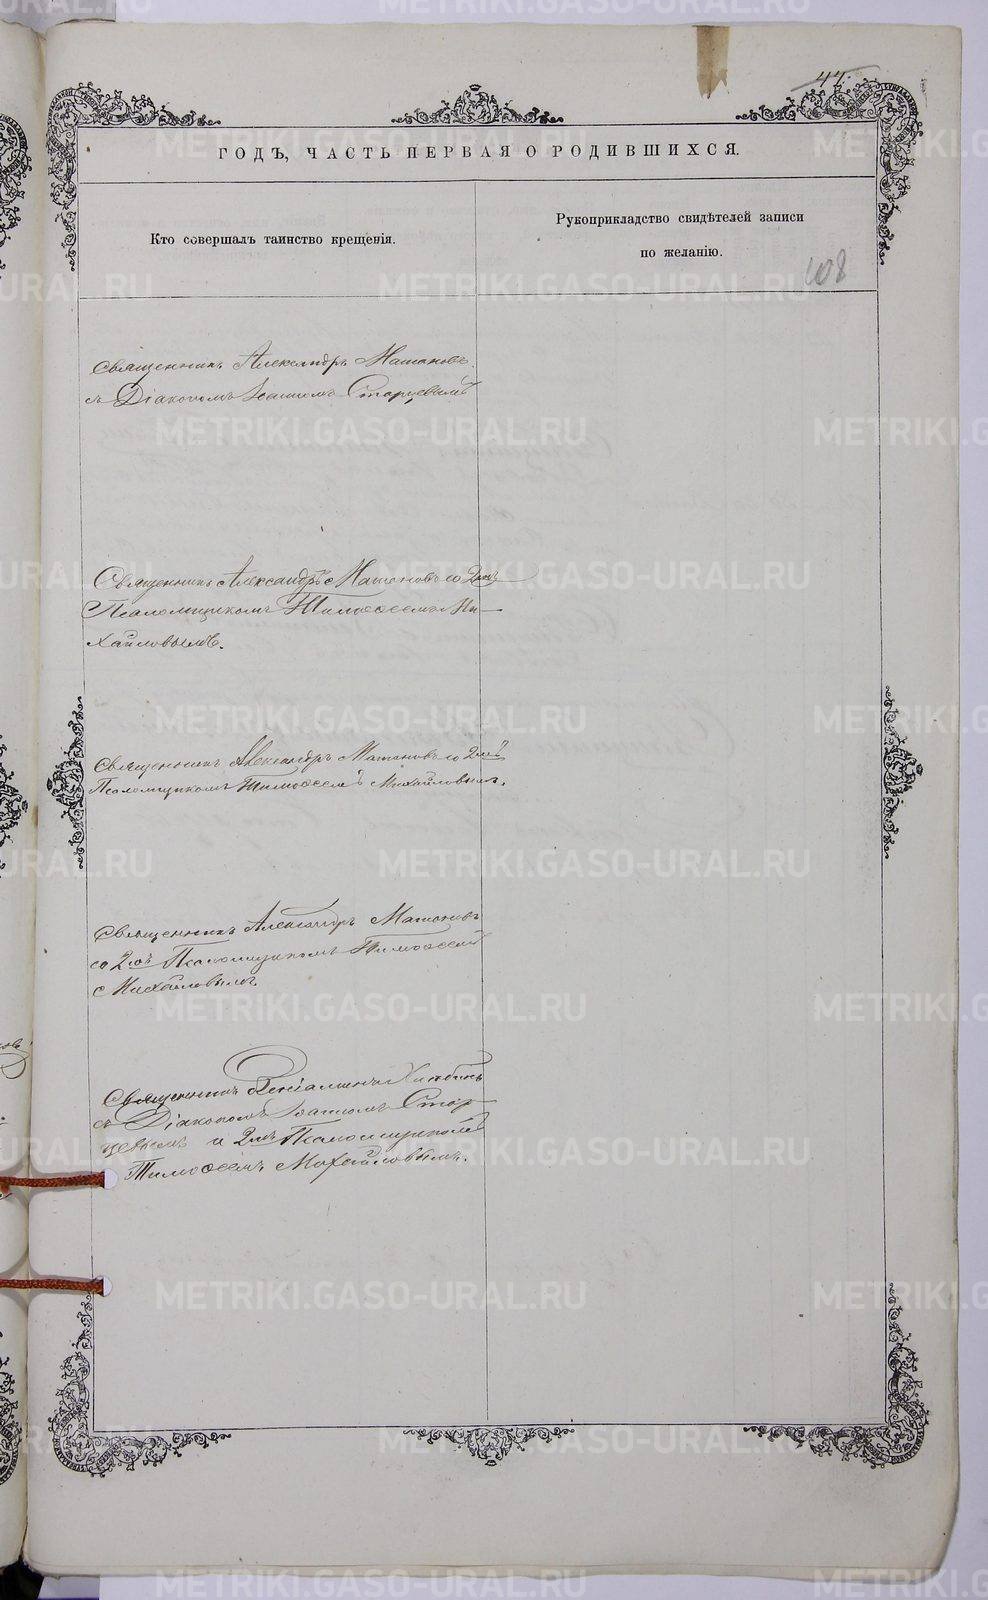 44
ГОДЪ, ЧАСТЬ ПЕРВАЯ О РОДИВШИХСЯ.
Кто совершалъ таинство крещенія.
Рукоприкладство свидѣтелей записи
по желанію.
108
Священникъ Александръ
съ Діакономъ Іоанномъ Старцевымъ
Священникъ Александръ со 2мъ
Псаломщикомъ Тимоѳеемъ Ми-
хайловымъ.
Священникъ Александръ со 2мъ
Псаломщикомъ Тимоѳеемъ Михайловымъ.
Священникъ Александръ
со 2мъ Псаломщикомъ Тимоѳеемъ
Михайловымъ.
Священникъ Веніаминъ
съ Діакономъ Іоанномъ Стар-
цевымъ и 2мъ Псаломщикомъ
Тимоѳеемъ Михайловымъ.
METRIKI.GASO-URAL.RU